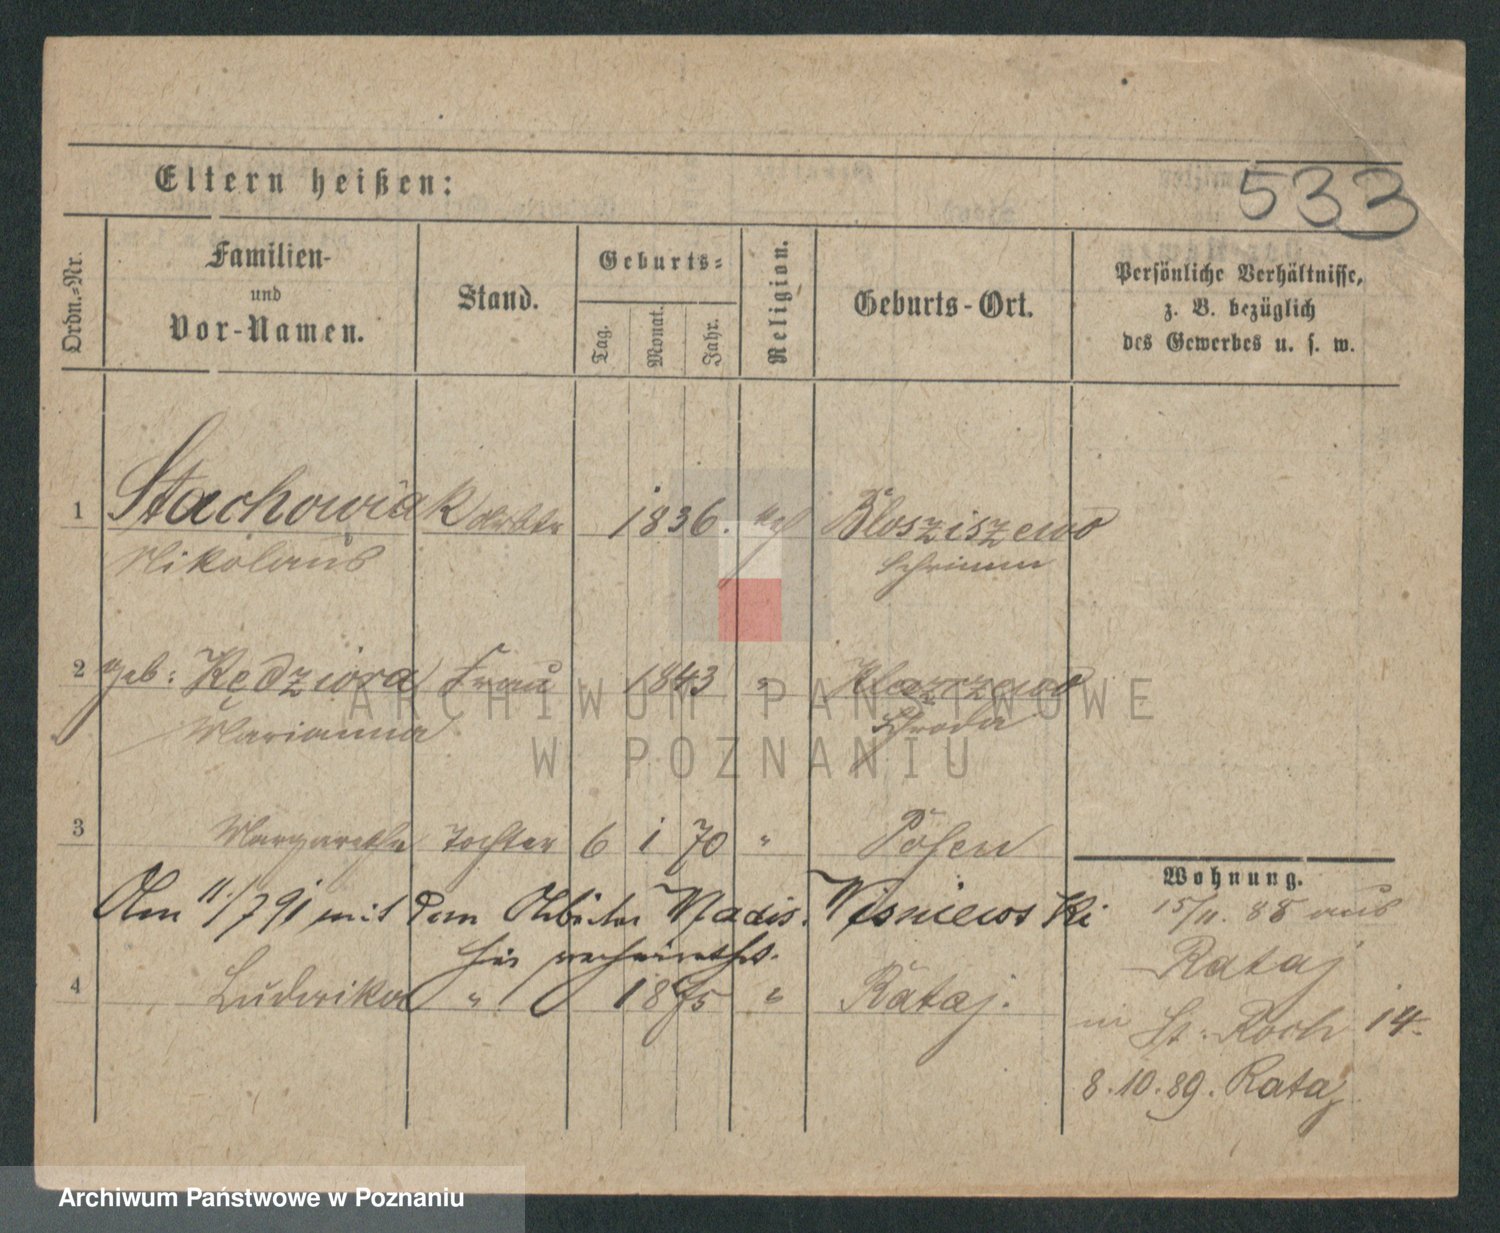 533
Eltern heißen:
Ordn.-Nr.
Familien-
und
Vor-Namen.
Stand.
Geburts-
Tag.
Monat.
Jahr.
Religion.
Geburts-Ort.
Persönliche Verhältnisse,
z. B. bezüglich
des Gewerbes u. s. w.
1 Stachowiak 1836. Kgl Bloszizewo
Nikolaus Schrimm
2 geb: Kędziora Frau 1843 " 
Marianna Schroda
3 Margarethe Tochter 6 1 70 " Posen
Am 11/7 91 mit dem Arbeiter Wisniewski
hier verheirathet.
4 Ludwika " 1875 " Rataj.
Wohnung.
15/11. 88 aus
Rataj
in St. Roch 14.
8.10.89. Rataj
ARCHIWUM PAŃSTWOWE
W POZNANIU
Archiwum Państwowe w Poznaniu